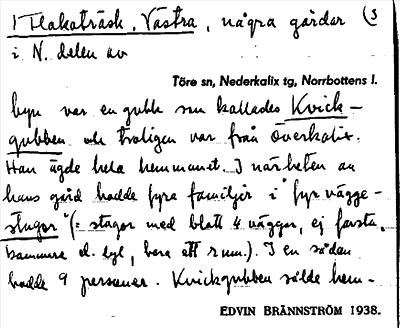 Flakaträsk, Västra, några gårdar (3
i N. delen av
Töre sn, Nederkalix tg, Norrbottens l.
byn var en gubbe som kallades Kvick-
gubben och troligen var från Överkalix.
Han ägde hela hemmanet. I närheten av
hans gård hade fyra familjer i "fyrvägge-
stugor" (= stugor med blott 4 väggar, ej farstu,
kammare el. dyl, bara ett rum). I en sådan
bodde 9 personer. Kvickgubben sålde hem-
EDVIN BRÄNNSTRÖM 1938.